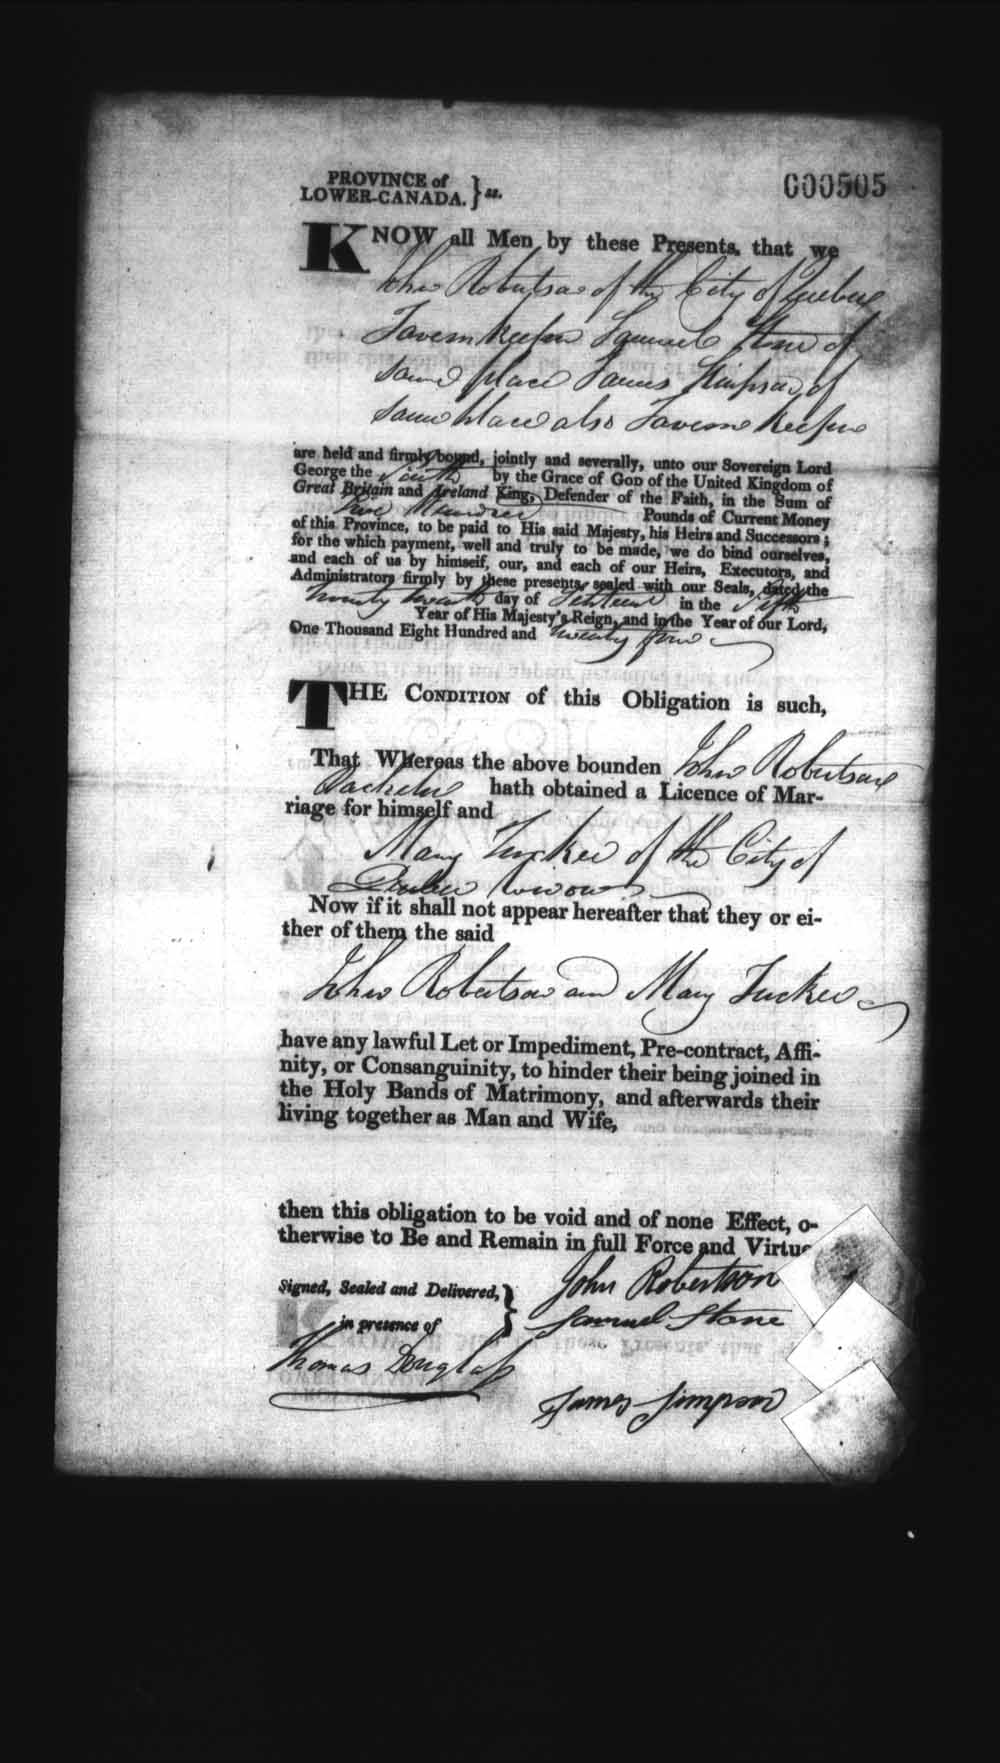 PROVINCE of
LOWER-CANADA. } ss.
000505
KNOW all Men by these Presents, that we
John Robertson of the City of Quebec
Tavern Keeper Samuel Stone of
same place James Simpson of
same place also Tavern Keeper
are held and firmly bound, jointly and severally, unto our Sovereign Lord
George the Fourth by the Grace of GOD of the United Kingdom of
Great Britain and Ireland King, Defender of the Faith, in the Sum of
Five Hundred Pounds of Current Money
of this Province, to be paid to His said Majesty, his Heirs and Successors;
for the which payment, well and truly to be made, we do bind ourselves,
and each of us by himself, our, and each of our Heirs, Executors, and
Administrators firmly by these presents, sealed with our Seals, dated the
twenty day of in the Fifth
Year of His Majesty's Reign, and in the Year of our Lord,
One Thousand Eight Hundred and twenty four
THE CONDITION of this Obligation is such,
That Whereas the above bounden John Robertson
Bachelor hath obtained a Licence of Mar-
riage for himself and
Mary Tucker of the City of
Quebec Widow
Now if it shall not appear hereafter that they or ei-
ther of them the said
John Robertson and Mary Tucker
have any lawful Let or Impediment, Pre-contract, Affi-
nity, or Consanguinity, to hinder their being joined in
the Holy Bands of Matrimony, and afterwards their
living together as Man and Wife,
then this obligation to be void and of none Effect, o-
therwise to Be and Remain in full Force and Virtue
Signed, Sealed and Delivered, }
in presence of
John Robertson
Samuel Stone
Thomas Douglass
James Simpson